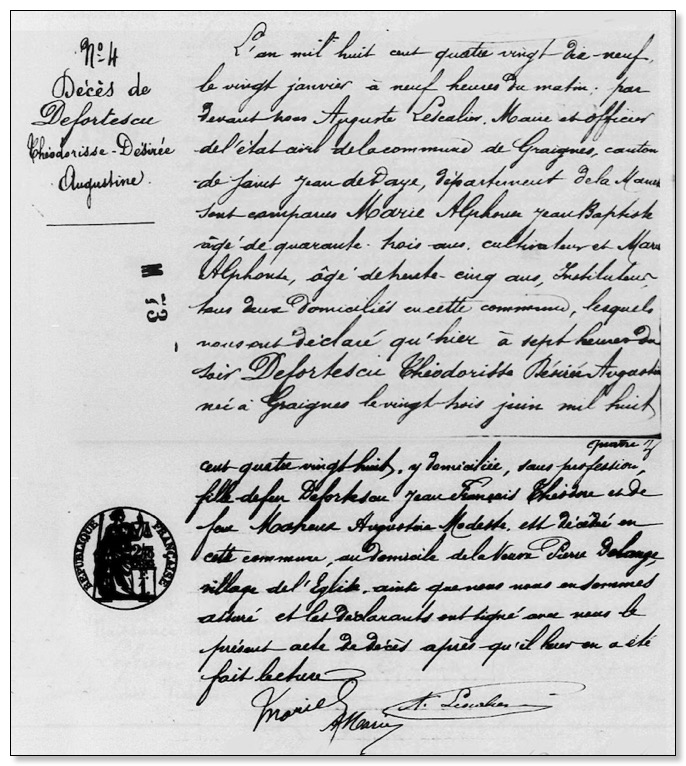 N° 4
Décès de
Defortescu
Théodorisse-Désirée
Augustine.
M 73 -
L'an mil huit cent quatre vingt dix-neuf,
le vingt janvier à neuf heures du matin; par
devant nous Auguste Lescalier, Maire et officier
de l'état civil de la commune de Graignes, canton
de Saint Jean de Daye, département de la Manche
sont comparus Marie Alphonse Jean Baptiste
âgé de quarante-trois ans, cultivateur et Marie
Alphonse, âgé de trente-cinq ans, Instituteur,
tous deux domiciliés en cette commune, lesquels
nous ont déclaré qu'hier à sept heures du
soir Defortescu Théodorisse Désirée Augustine
née à Graignes le vingt trois juin mil huit
cent quatre vingt huit, y domiciliée, sans profession,
fille de feu Defortescu Jean François Théodore et de
feue Augustine Modeste, est décédée en
cette commune, au domicile de la Veuve Pierre Delange,
village de l'Eglise, ainsi que nous nous en sommes
assuré et les déclarants ont signé avec nous le
présent acte de décès après qu'il leur en a été
fait lecture
Marie
A Marie
A. Lescalier
RÉPUBLIQUE FRANÇAISE